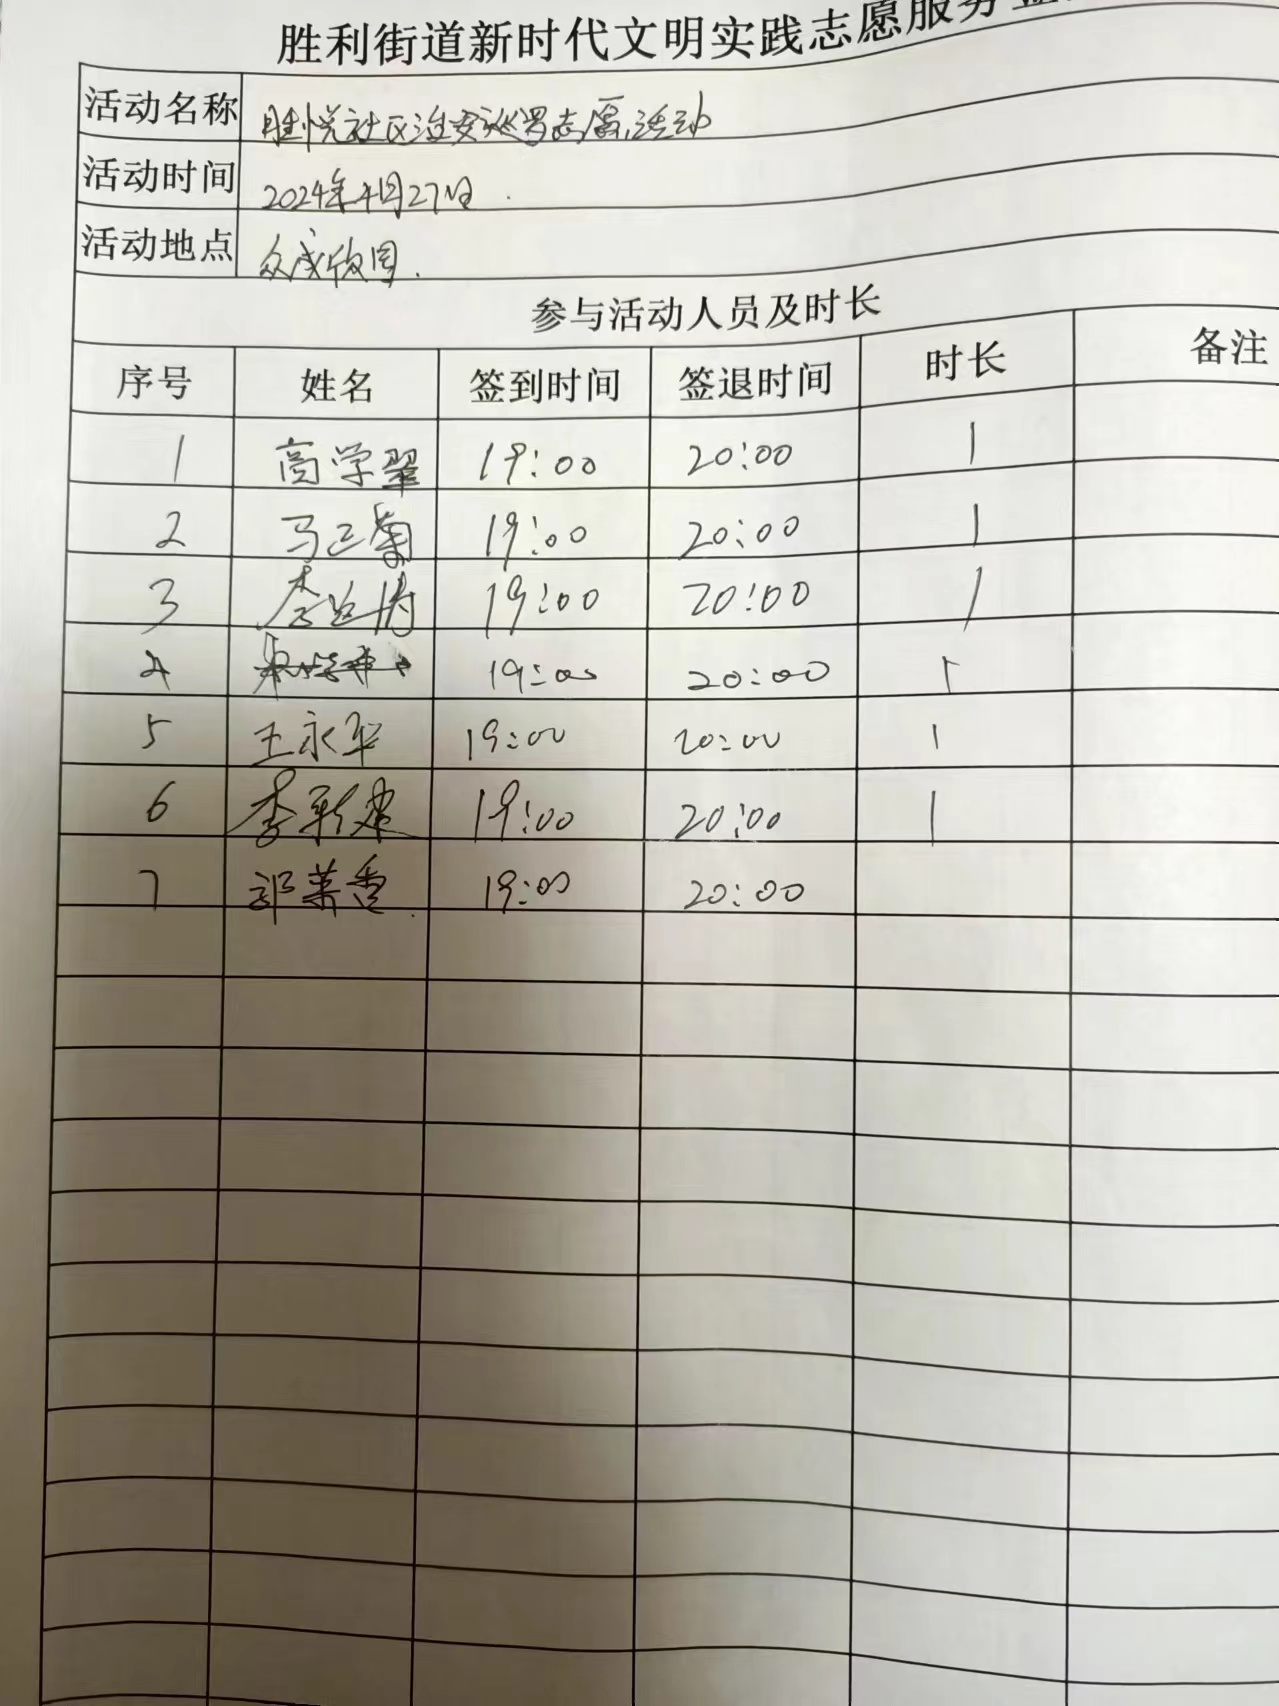 胜利街道新时代文明实践志愿服务
活动名称 胜悦社区治安巡逻志愿活动
活动时间 2024年4月27日.
活动地点 众成欣园.
参与活动人员及时长
序号 姓名 签到时间 签退时间 时长 备注
1 高学翠 19:00 20:00 1
2 马正菊 19:00 20:00 1
3 李 19:00 20:00 1
4 19:00 20:00 1
5 王永平 19:00 20:00 1
6 李新建 19:00 20:00 1
7 香 19:00 20:00